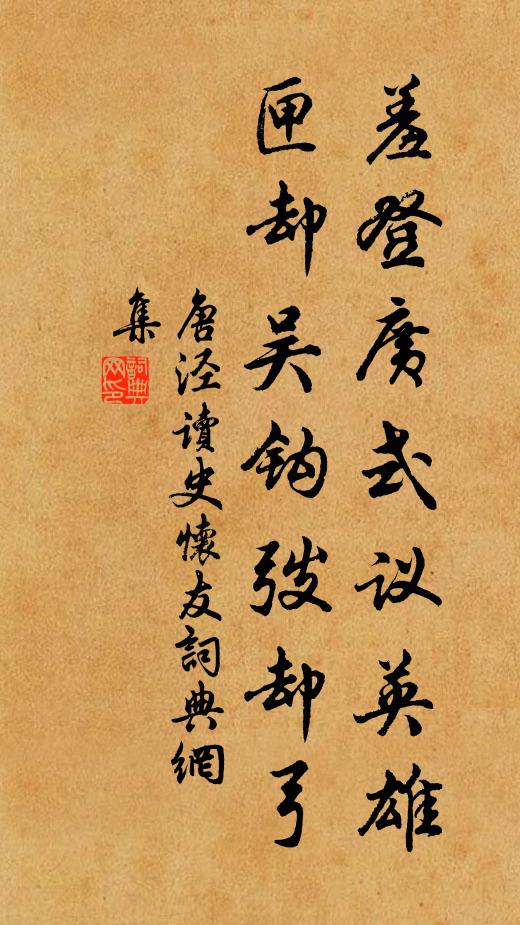 羞登廣武议英雄
匣却吴钩弢却弓
唐泾讀史懷友詞典網
集
詞典网印